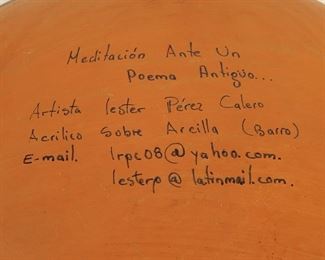 Meditación Ante Un
Poema Antigüo...
Artista lester Pérez Calero
Acrilico Sobre Arcilla (Barro)
E-mail. lrpc08@yahoo.com.
lesterpo@latinmail.com.